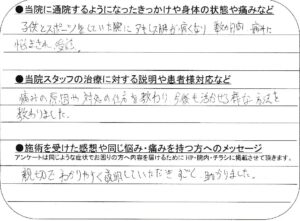 ●当院に通院するようになったきっかけや身体の状態や痛みなど
子供とスポーツをしていた際にアキレス腱が痛くなり 数か月 痛みに
悩まされ
●当院スタッフの治療に対する説明や患者様対応など
痛みの原因や対処の仕方を教わり 今後も活かせる様な方法を
教わりました。
●施術を受けた感想や同じ悩み・痛みを持つ方へのメッセージ
アンケートは同じような症状でお困りの方へ内容を届けるためにHP・院内・チラシに掲載させて頂きます。
親切でわかりやすく説明していただき すごく 助かりました。